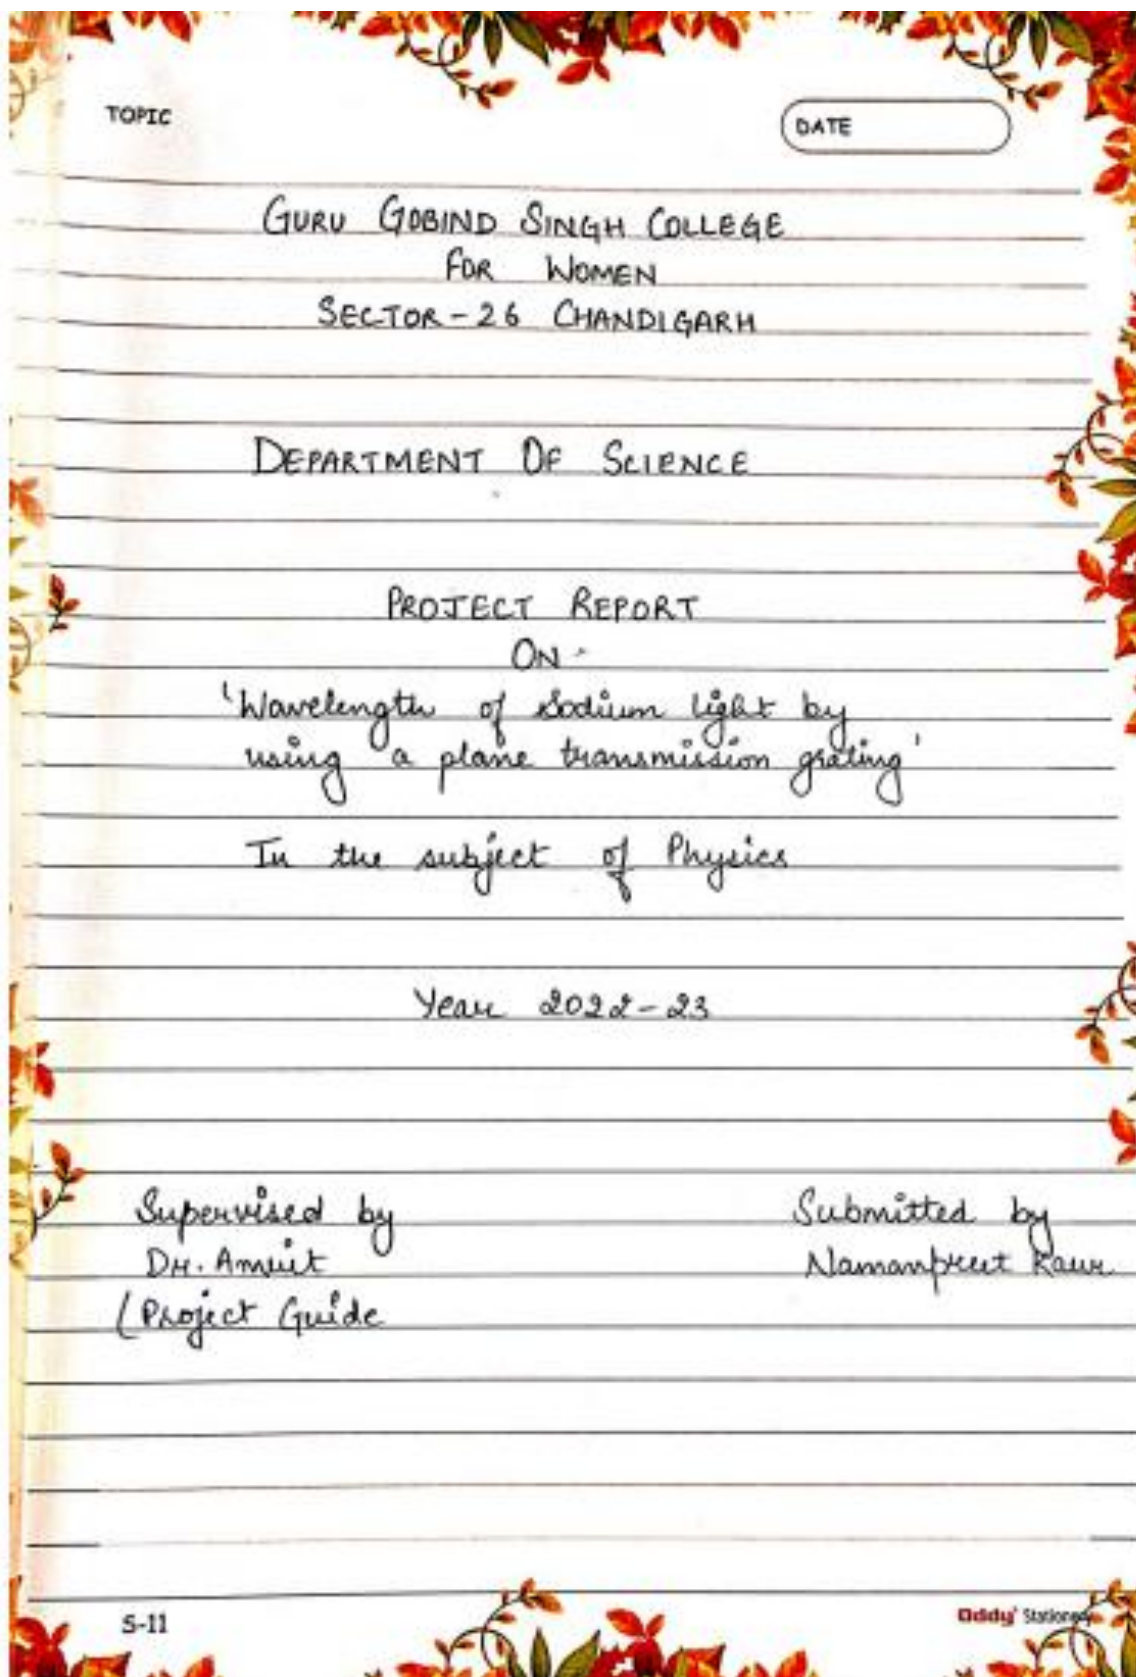 TOPIC
DATE
GURU GOBIND SINGH COLLEGE
FOR WOMEN
SECTOR-26 CHANDIGARH
DEPARTMENT OF SCIENCE
PROJECT REPORT
ON
'Wavelength of Sodium light by
using a plane transmission grating'
In the subject of Physics
Year 2022-23
Supervised by
Submitted by
Dr. Amrit
Namanpreet Kaur
(Project Guide
S-11
Oddy Stationery